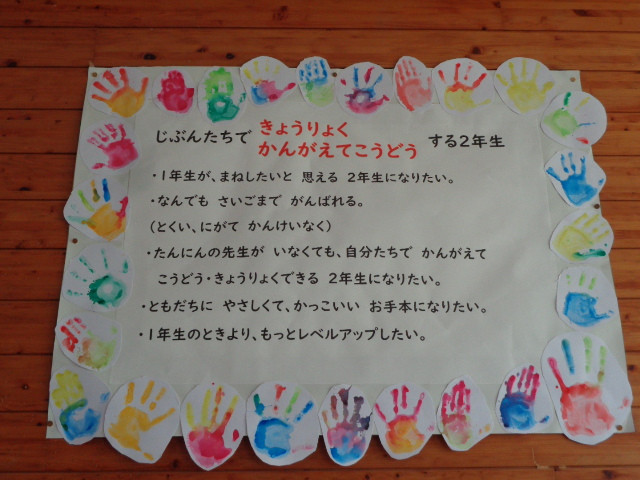 じぶんたちで きょうりょく かんがえてこうどう する2年生
・1年生が、まねしたいと 思える 2年生になりたい。
・なんでも さいごまで がんばれる。
(とくい、にがて かんけいなく)
・たんにんの先生が いなくても、自分たちで かんがえて
こうどう・きょうりょくできる 2年生になりたい。
・ともだちに やさしくて、かっこいい お手本になりたい。
・1年生のときより、もっとレベルアップしたい。